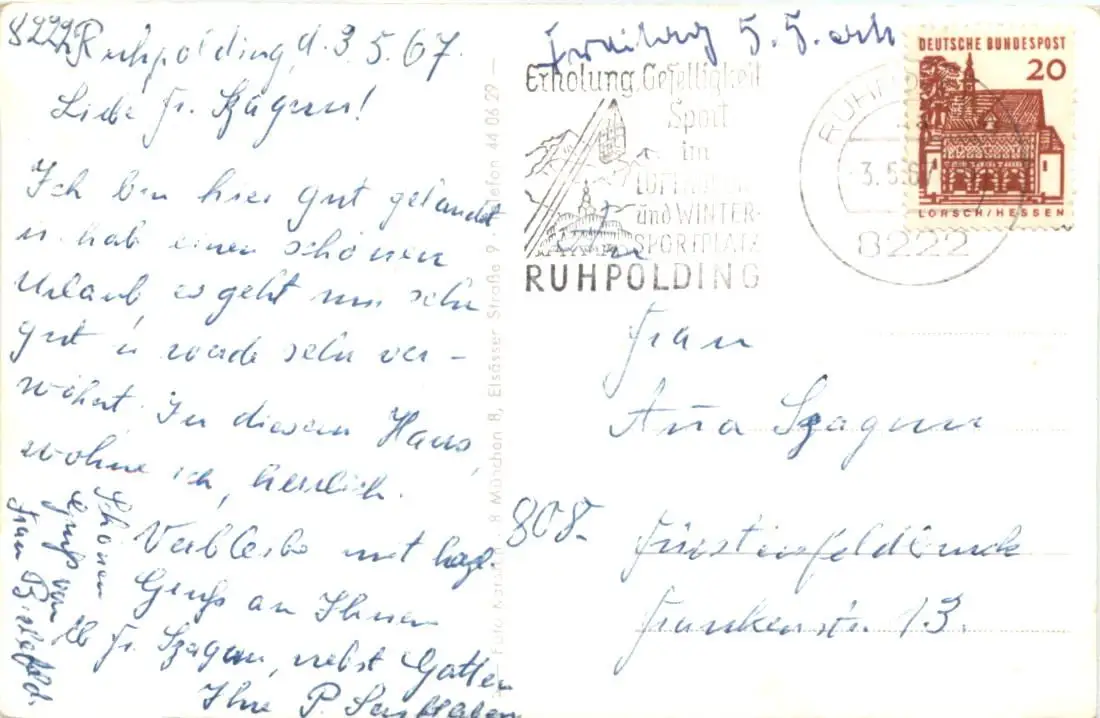 8222 Ruhpolding, d. 3.5.67.
Liebe Fr. Szagun!
Ich bin hier gut gelandet
u. hab einen schönen
Urlaub, es geht mir sehr
gut u werde sehr ver-
wöhnt. In diesem Haus,
wohne ich, herrlich.
Verbleibe mit herzl.
Gruß an Ihnen
Fr. Szagun, nebst Gatten
Ihre P.
Schönen
Gruß von
Frau Bielefeld.
Freitag 5.5. erh
Erholung, Geselligkeit
Sport
im
LUFTKURORT
und WINTER-
SPORTPLATZ
RUHPOLDING
RUHPOLDING
3.5.67
8222
DEUTSCHE BUNDESPOST
20
LORSCH/HESSEN
8 München 8, Elsässer Straße 9 · Telefon 44 06 29
Frau
Anna Szagun
808-
Fürstenfeldbruck
Frankenstr. 13.